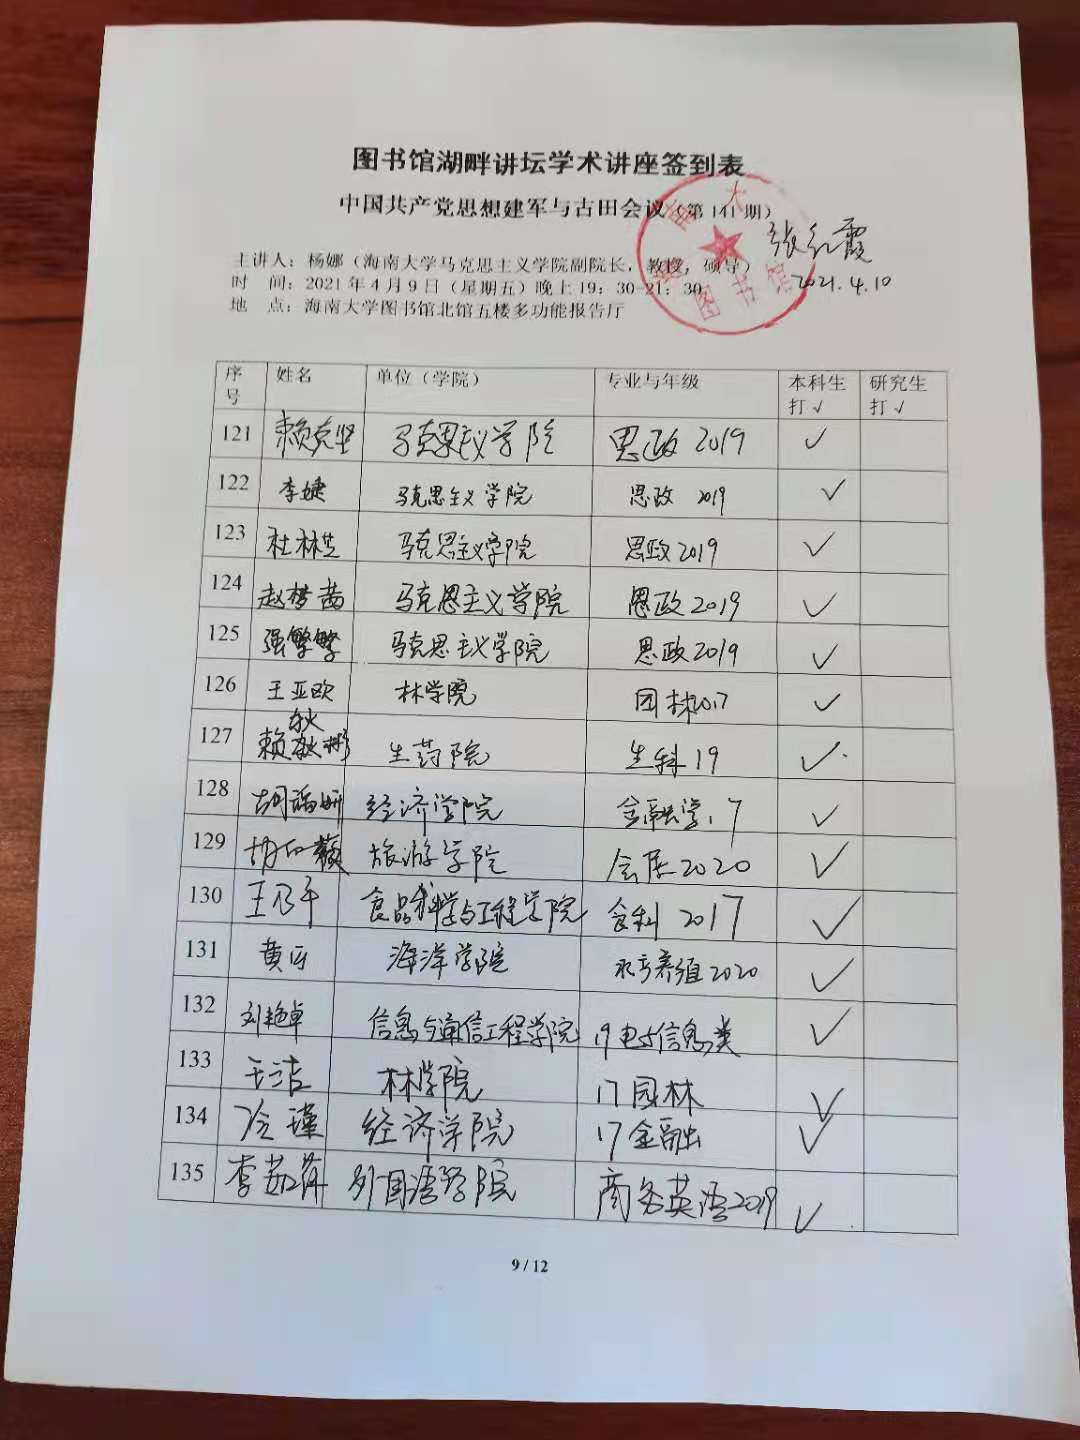 图书馆湖畔讲坛学术讲座签到表
中国共产党思想建军与古田会议(第141期)
张红霞
2021.4.10
主讲人：杨娜（海南大学马克思主义学院副院长，教授，硕导）
时 间：2021年4月9日（星期五）晚上19：30-21：30
地 点：海南大学图书馆北馆五楼多功能报告厅
海南大 图书馆
序号 姓名 单位（学院） 专业与年级 本科生打√ 研究生打√
121 赖克坚 马克思主义学院 思政 2019 ✓
122 李婕 马克思主义学院 思政 2019 ✓
123 杜林芝 马克思主义学院 思政2019 ✓
124 赵梦茜 马克思主义学院 思政2019 ✓
125 强繁繁 马克思主义学院 思政2019 ✓
126 王亚欧 林学院 园林2017 ✓
127 赖秋彬 生药院 生科19 ✓
128 胡 妍 经济学院 金融学17 ✓
129 旅游学院 会展2020 ✓
130 王乃千 食品科学与工程学院 食科 2017 ✓
131 黄 海洋学院 水产养殖2020 ✓
132 刘艳卓 信息与通信工程学院 19电子信息类 ✓
133 王洁 林学院 17园林 ✓
134 冷瑾 经济学院 17金融 ✓
135 李茹萍 外国语学院 商务英语2019 ✓
9 / 12